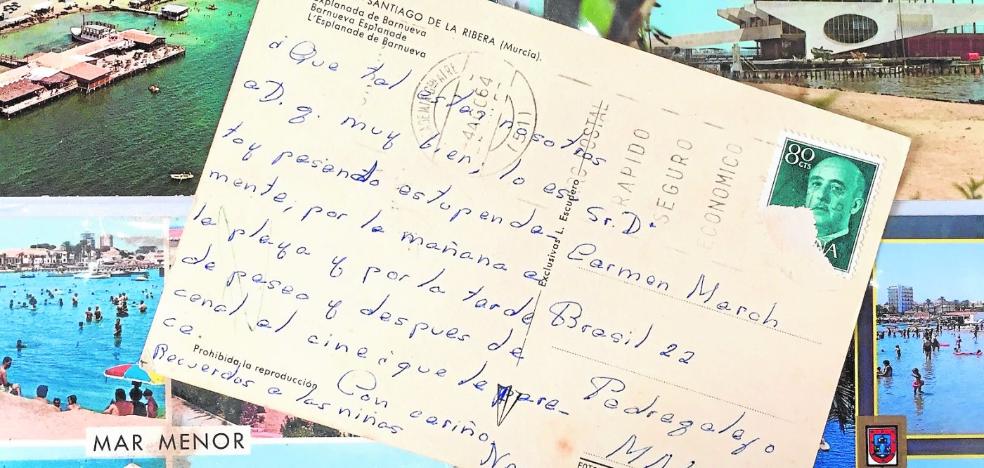 SANTIAGO DE LA RIBERA (Murcia).
Explanada de Barnueva
Barnueva Esplanade
L'Esplanade de Barnueva
¿ Que tal estan nosotros
a D. g. muy bien, lo es-
toy pasando estupenda-
mente, por la mañana a
la playa y por la tarde
de paseo y despues de
cenal al cine ¿que te pare-
ce.
Con cariño,
Recuerdos a las niñas
Prohibida la reproducción
Exclusivas L. Escudero
4 AGO 64
POSTAL
RAPIDO
SEGURO
ECONOMICO
80
CTS
Sr. Dª
Carmen March
Brasil 22
Pedregalejo
MAR MENOR